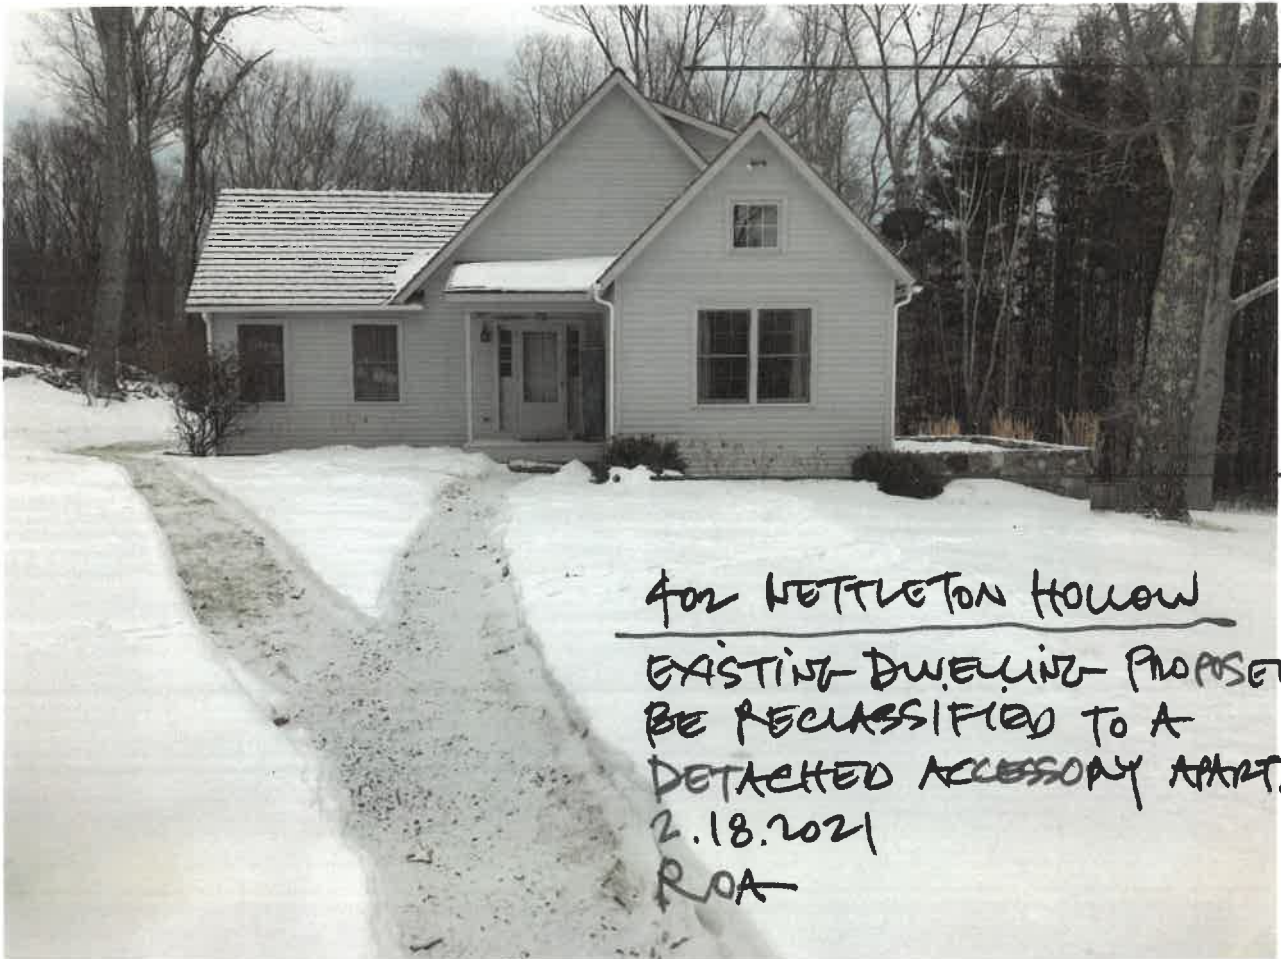 402 NETTLETON HOLLOW
EXISTING DWELLING PROPOSED
BE RECLASSIFIED TO A
DETACHED ACCESSORY APART.
2.18.2021
ROA